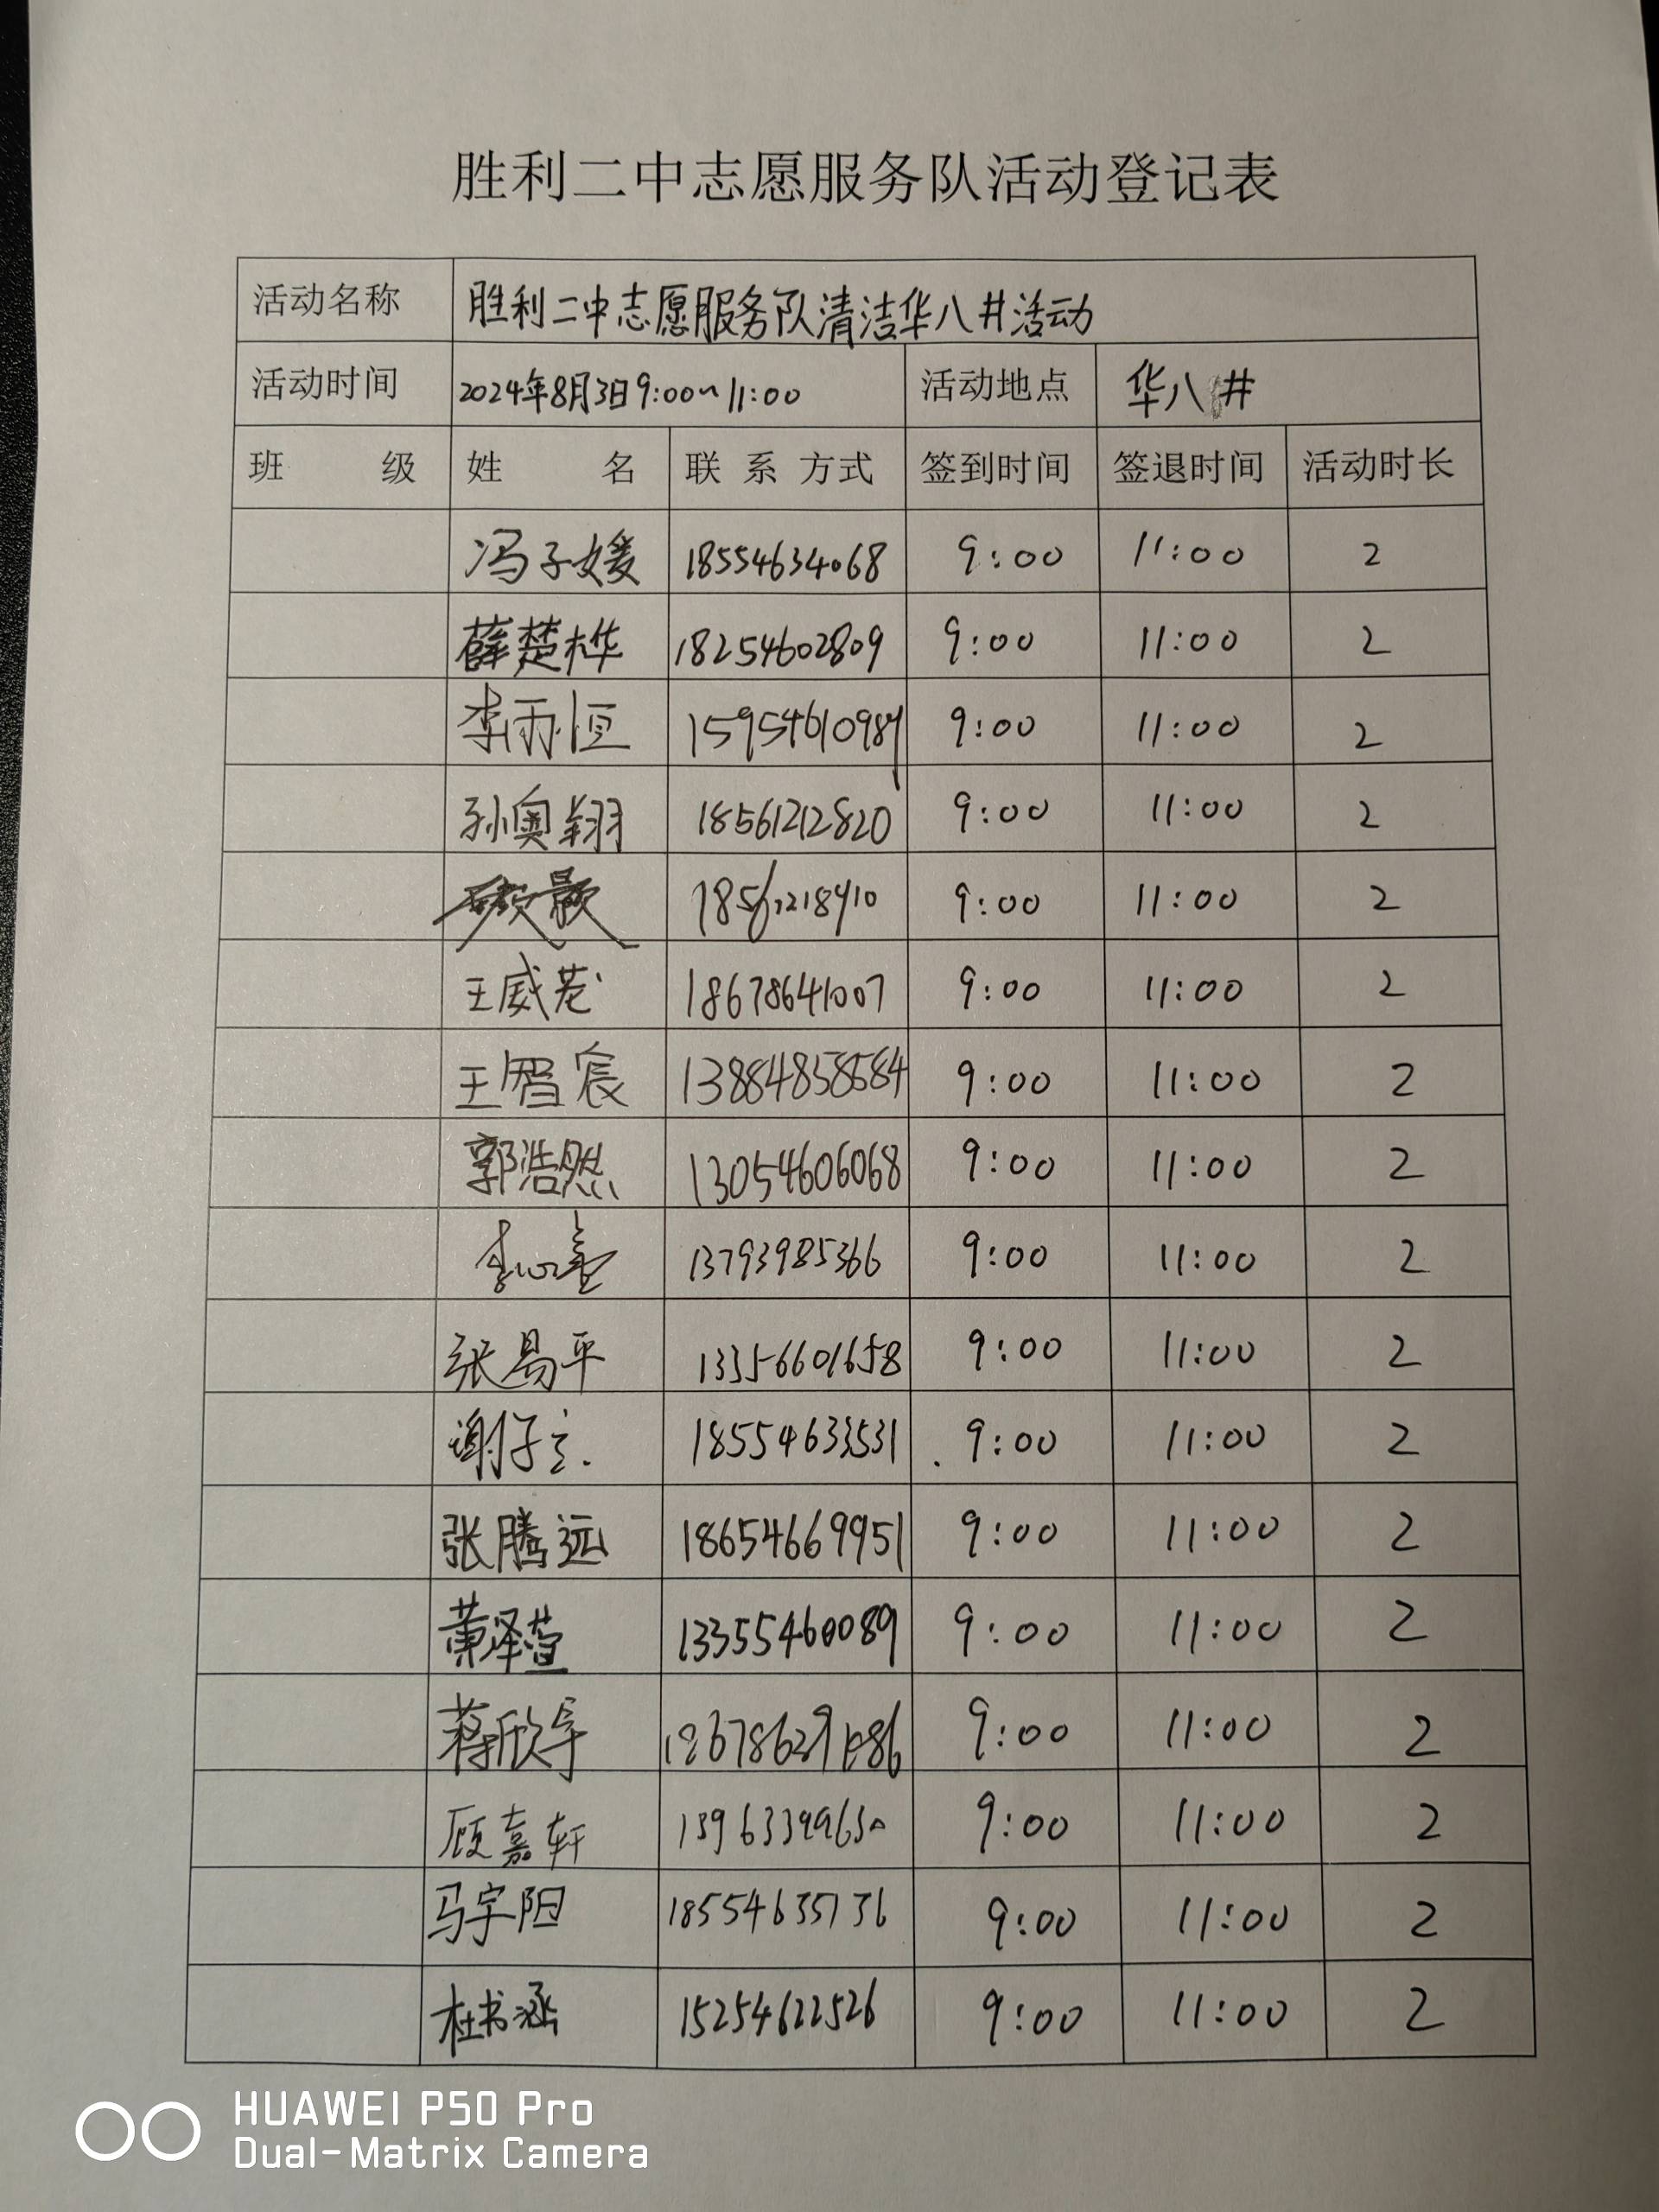 胜利二中志愿服务队活动登记表
活动名称 胜利二中志愿服务队清洁华八井活动
活动时间 2024年8月3日9:00~11:00 活动地点 华八井
班 级 姓 名 联 系 方式 签到时间 签退时间 活动时长
冯子媛 18554634068 9:00 11:00 2
薛楚桦 18254602809 9:00 11:00 2
李雨恒 15954610984 9:00 11:00 2
孙奥翔 18561212820 9:00 11:00 2
9:00 11:00 2
王威茗 18678641007 9:00 11:00 2
王智宸 13884858584 9:00 11:00 2
郭浩然 13054606068 9:00 11:00 2
13793985366 9:00 11:00 2
张易平 13356601658 9:00 11:00 2
18554633531 9:00 11:00 2
张腾远 18654669951 9:00 11:00 2
13355460089 9:00 11:00 2
9:00 11:00 2
顾嘉轩 9:00 11:00 2
马宇阳 18554635736 9:00 11:00 2
杜书涵 15254622526 9:00 11:00 2
HUAWEI P50 Pro
Dual-Matrix Camera